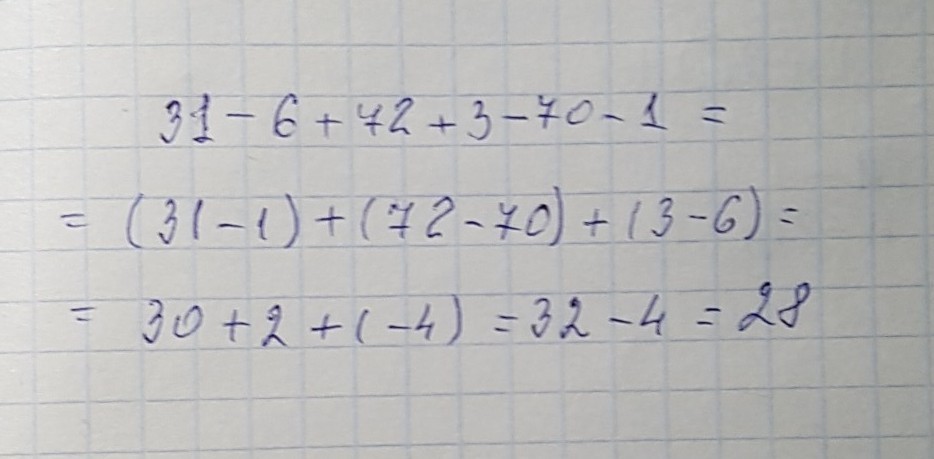 31 - 6 + 72 + 3 - 70 - 1 =
= (31 - 1) + (72 - 70) + (3 - 6) =
= 30 + 2 + (-4) = 32 - 4 = 28